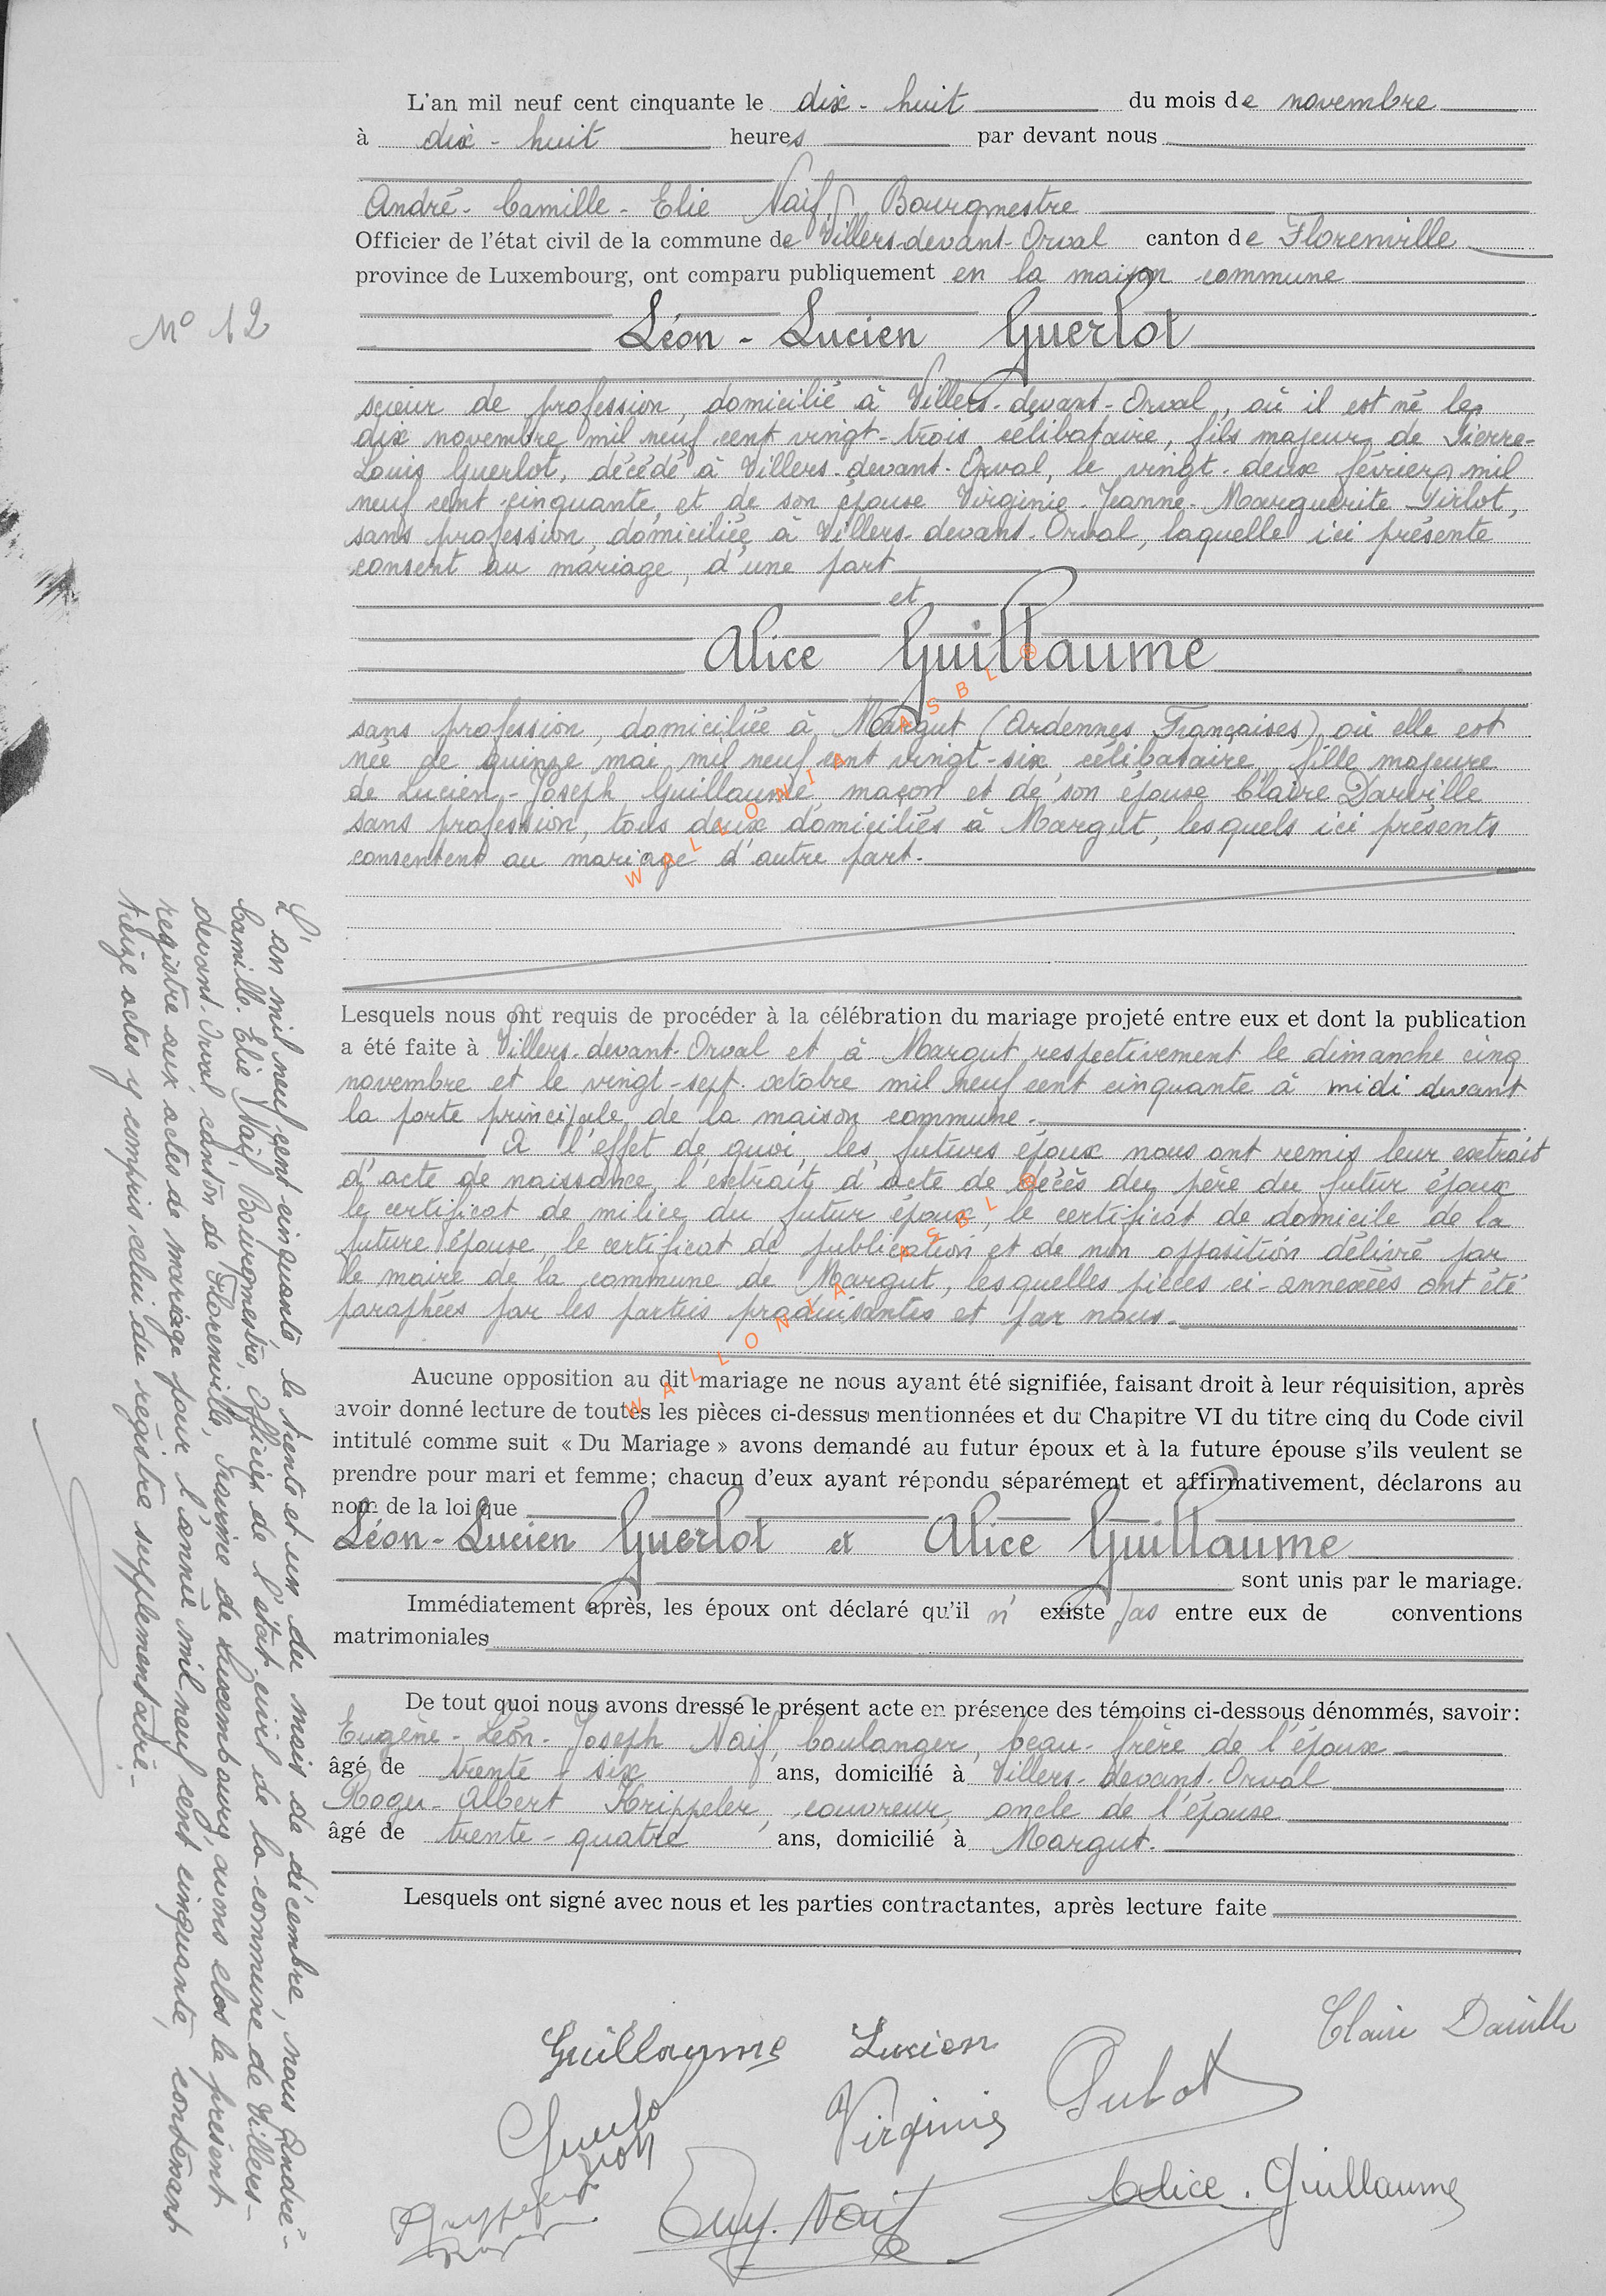 L'an mil neuf cent cinquante le dix-huit du mois de novembre
à dix-huit heures par devant nous
André-Camille-Elie Naif, Bourgmestre
Officier de l'état civil de la commune de Villers-devant-Orval canton de Florenville
province de Luxembourg, ont comparu publiquement en la maison commune
N° 12
Léon-Lucien Guerlot
scieur de profession, domicilié à Villers-devant-Orval, où il est né le
dix novembre mil neuf cent vingt-trois, célibataire, fils majeur de Pierre-
Louis Guerlot, décédé à Villers-devant-Orval, le vingt-deux février mil
neuf cent cinquante, et de son épouse Virginie-Jeanne-Marguerite Pirlot,
sans profession, domiciliée à Villers-devant-Orval, laquelle ici présente
consent au mariage, d'une part
et
Alice Guillaume
sans profession, domiciliée à Margut (Ardennes Françaises) où elle est
née le quinze mai mil neuf cent vingt-six, célibataire, fille majeure
de Lucien-Joseph Guillaume, maçon et de son épouse Claire Darville
sans profession, tous deux domiciliés à Margut, lesquels ici présents
consentent au mariage d'autre part.
WALLONIA ASBL ®
Lesquels nous ont requis de procéder à la célébration du mariage projeté entre eux et dont la publication
a été faite à Villers-devant-Orval et à Margut respectivement le dimanche cinq
novembre et le vingt-sept octobre mil neuf cent cinquante à midi devant
la porte principale de la maison commune.
A l'effet de quoi, les futurs époux nous ont remis leur extrait
d'acte de naissance, l'extrait d'acte de décès du père du futur époux
le certificat de milice du futur époux, le certificat de domicile de la
future épouse, le certificat de publication et de non opposition délivré par
le maire de la commune de Margut, lesquelles pièces ci-annexées ont été
paraphées par les parties produisantes et par nous.
WALLONIA ASBL ®
Aucune opposition au dit mariage ne nous ayant été signifiée, faisant droit à leur réquisition, après
avoir donné lecture de toutes les pièces ci-dessus mentionnées et du Chapitre VI du titre cinq du Code civil
intitulé comme suit « Du Mariage » avons demandé au futur époux et à la future épouse s'ils veulent se
prendre pour mari et femme; chacun d'eux ayant répondu séparément et affirmativement, déclarons au
nom de la loi que
Léon-Lucien Guerlot et Alice Guillaume
sont unis par le mariage.
Immédiatement après, les époux ont déclaré qu'il n'existe pas entre eux de conventions
matrimoniales
De tout quoi nous avons dressé le présent acte en présence des témoins ci-dessous dénommés, savoir:
Eugène-Léon-Joseph Naif, boulanger, beau-frère de l'époux
âgé de trente-six ans, domicilié à Villers-devant-Orval
Roger-Albert Krippeler, couvreur, oncle de l'épouse
âgé de trente-quatre ans, domicilié à Margut.
Lesquels ont signé avec nous et les parties contractantes, après lecture faite
L'an mil neuf cent cinquante, le trente et un du mois de décembre, nous André-
Camille-Elie Naif, Bourgmestre, Officier de l'état civil de la commune de Villers-
devant-Orval, canton de Florenville, province de Luxembourg, avons clos le présent
registre aux actes de mariage pour l'année mil neuf cent cinquante, contenant
treize actes y compris celui du registre supplémentaire.
Guillaume Lucien
Claire Darville
Virginie
Alice. Guillaume
Naif